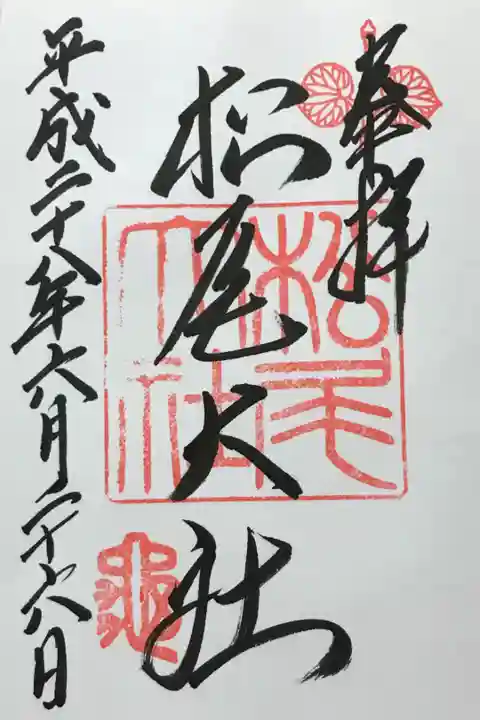 奉拝
松尾大社
松尾大社
平成二十八年六月二十六日